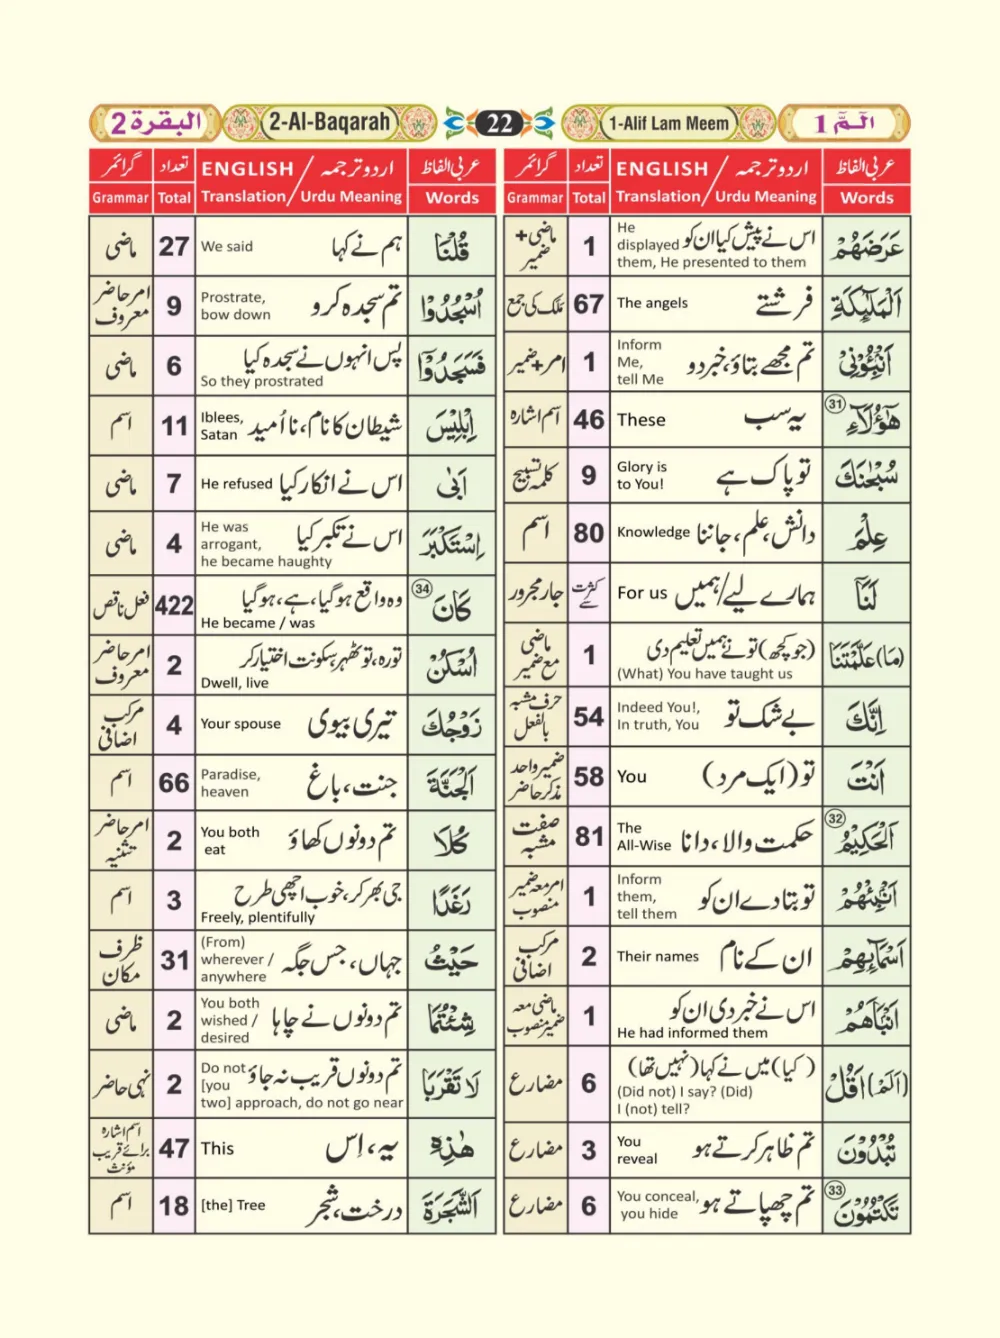 الٓمّٓ 1
1-Alif Lam Meem
22
2-Al-Baqarah
البقرة 2
عربی الفاظ اردو ترجمہ / ENGLISH تعداد گرائمر
Words Translation/ Urdu Meaning Total Grammar
عَرَضَهُمْ اس نے پیش کیا ان کو He displayed them, He presented to them 1 ماضی + ضمیر
اَلْمَلٰٓئِكَةِ فرشتے The angels 67 ملک کی جمع
اَنْۢبِـُٔوْنِيْ تم مجھے بتاؤ، خبر دو Inform Me, tell Me 1 امر+ضمیر
هٰٓؤُلَآءِ 31 یہ سب These 46 اسم اشارہ
سُبْحٰنَكَ تو پاک ہے Glory is to You! 9 کلمہ تسبیح
عِلْمَ دانش، علم، جاننا Knowledge 80 اسم
لَنَآ ہمارے لیے/ہمیں For us کثرت سے جار مجرور
(مَا) عَلَّمْتَنَا (جو کچھ) تو نے ہمیں تعلیم دی (What) You have taught us 1 ماضی مع ضمیر
اِنَّكَ بے شک تو Indeed You!, In truth, You 54 حرف مشبہ بالفعل
اَنْتَ تو (ایک مرد) You 58 ضمیر واحد مذکر حاضر
اَلْحَكِيْمُ 32 حکمت والا، دانا The All-Wise 81 صفت مشبہ
اَنْۢبِئْهُمْ تو بتا دے ان کو Inform them, tell them 1 امر معہ ضمیر منصوب
اَسْمَآئِهِمْ ان کے نام Their names 2 مرکب اضافی
اَنْۢبَاَهُمْ اس نے خبر دی ان کو He had informed them 1 ماضی معہ ضمیر منصوب
(اَلَمْ) اَقُلْ (کیا) میں نے کہا (نہیں تھا) (Did not) I say? (Did) I (not) tell? 6 مضارع
تُبْدُوْنَ تم ظاہر کرتے ہو You reveal 3 مضارع
تَكْتُمُوْنَ 33 تم چھپاتے ہو You conceal, you hide 6 مضارع
عربی الفاظ اردو ترجمہ / ENGLISH تعداد گرائمر
Words Translation/ Urdu Meaning Total Grammar
قُلْنَا ہم نے کہا We said 27 ماضی
اُسْجُدُوْا تم سجدہ کرو Prostrate, bow down 9 امر حاضر معروف
فَسَجَدُوْٓا پس انہوں نے سجدہ کیا So they prostrated 6 ماضی
اِبْلِيْسَ شیطان کا نام، نا اُمید Iblees, Satan 11 اسم
اَبٰى اس نے انکار کیا He refused 7 ماضی
اِسْتَكْبَرَ اس نے تکبر کیا He was arrogant, he became haughty 4 ماضی
كَانَ 34 وہ واقع ہو گیا، ہے، ہو گیا He became / was 422 فعل ناقص
اُسْكُنْ تو رہ، تو ٹھہر، سکونت اختیار کر Dwell, live 2 امر حاضر معروف
زَوْجُكَ تیری بیوی Your spouse 4 مرکب اضافی
اَلْجَنَّةَ جنت، باغ Paradise, heaven 66 اسم
كُلَا تم دونوں کھاؤ You both eat 2 امر حاضر تثنیہ
رَغَدًا جی بھر کر، خوب اچھی طرح Freely, plentifully 3 اسم
حَيْثُ جہاں، جس جگہ (From) wherever / anywhere 31 ظرف مکان
شِئْتُمَا تم دونوں نے چاہا You both wished / desired 2 ماضی
لَا تَقْرَبَا تم دونوں قریب نہ جاؤ Do not [you two] approach, do not go near 2 نہی حاضر
هٰذِهِ یہ، اِس This 47 اسم اشارہ برائے قریب مؤنث
اَلشَّجَرَةَ درخت، شجر [the] Tree 18 اسم